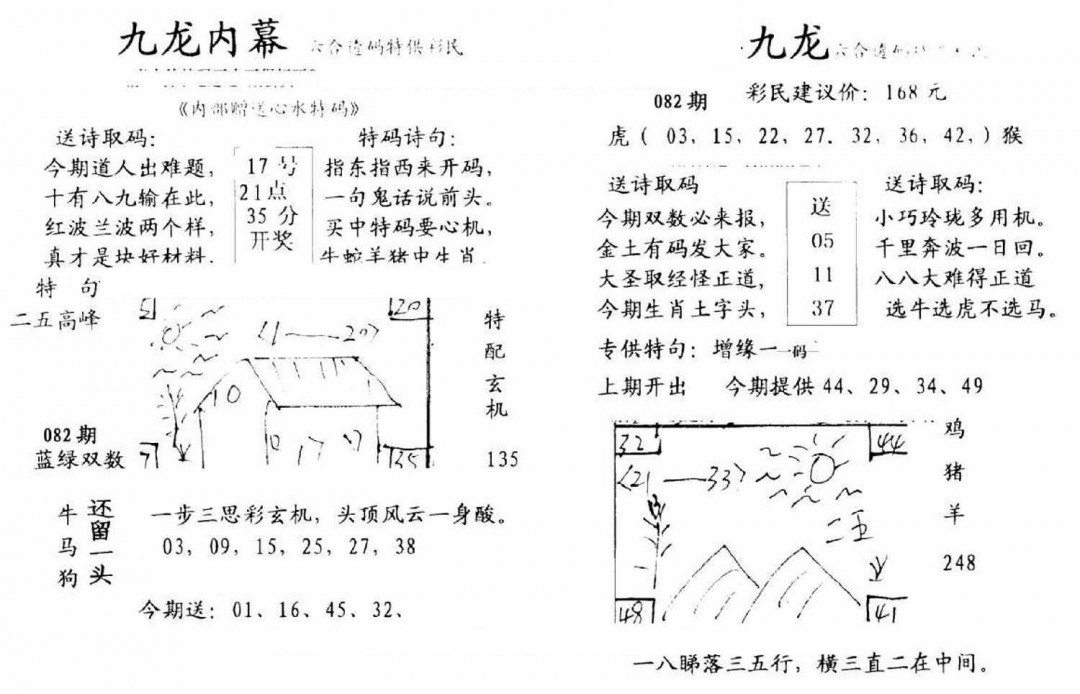 九龙内幕
《内部赠送心水特码》
送诗取码:
今期道人出难题,
十有八九输在此,
红波兰波两个样,
真才是块好材料.
17 号
21点
35 分
开奖
特码诗句:
指东指西来开码,
一句鬼话说前头。
买中特码要心机,
牛蛇羊猪中生肖.
特 句
二五高峰
20
1——20
10
35
特配玄机
135
082期
蓝绿双数
牛马狗
还留一头
一步三思彩玄机, 头顶风云一身酸。
03, 09, 15, 25, 27, 38
今期送: 01、16、45、32、
九龙
082期
彩民建议价: 168 元
虎 ( 03, 15, 22, 27. 32, 36, 42,) 猴
送诗取码
今期双数必来报,
金土有码发大家。
大圣取经怪正道,
今期生肖土字头,
送
05
11
37
送诗取码:
小巧玲珑多用机。
千里奔波一日回。
八八大难得正道
选牛选虎不选马。
专供特句: 增缘一一码
上期开出 今期提供 44、29、34、49
32
44
21——33
二五
48
41
鸡
猪
羊
248
一八睇落三五行, 横三直二在中间。